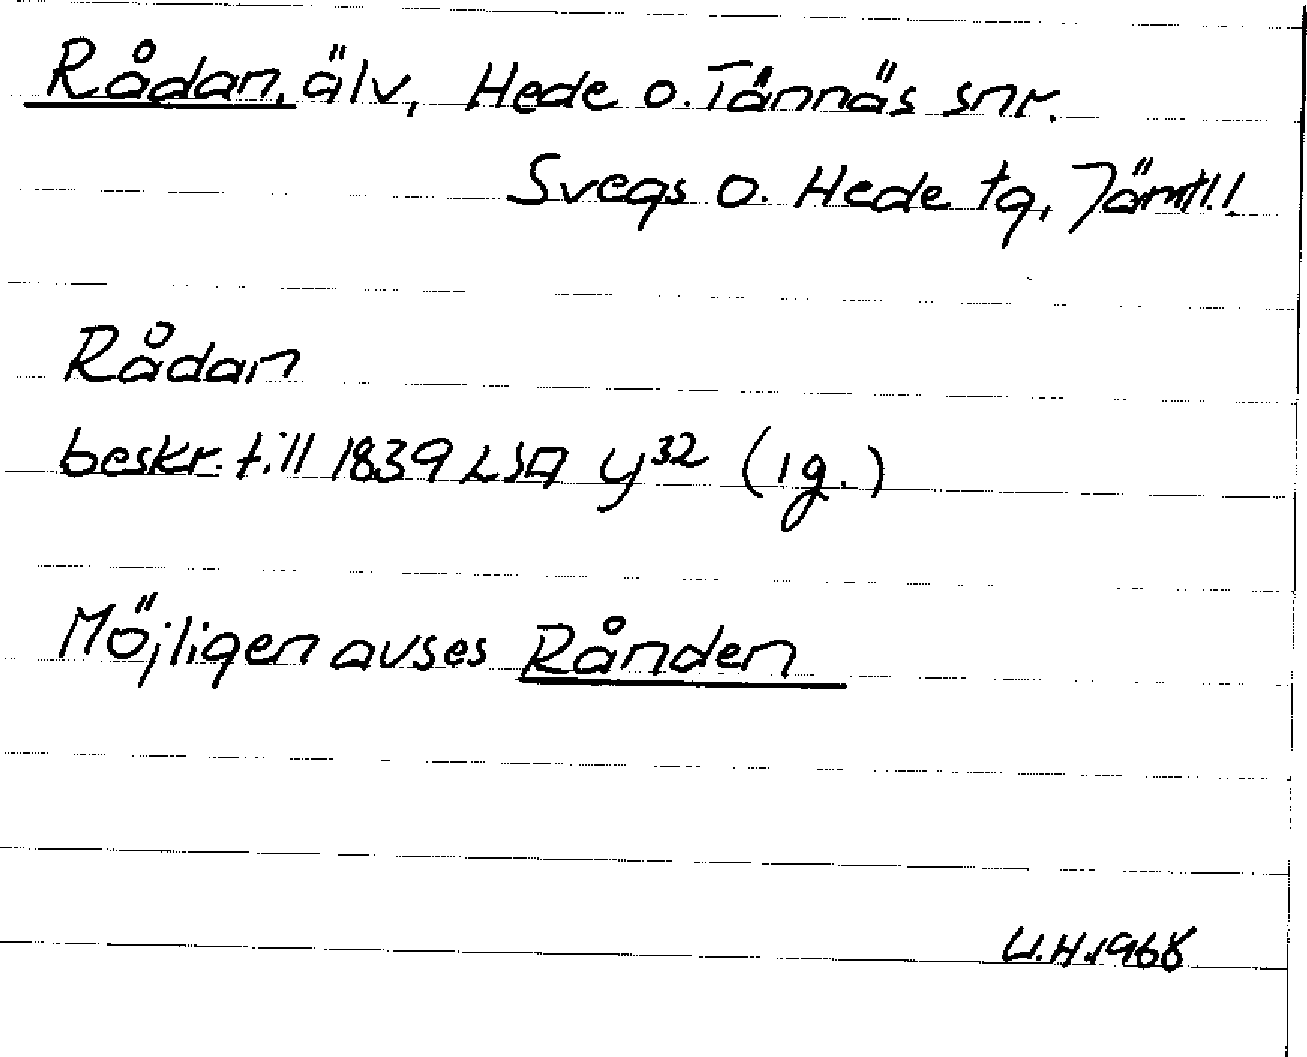 Rådan, älv, Hede o. Tännäs snr.
Svegs o. Hede tg, Jämtl.l.
Rådan
beskr. till 1839 LSA y³² (1g.)
Möjligen avses Rånden
U.H. 1968